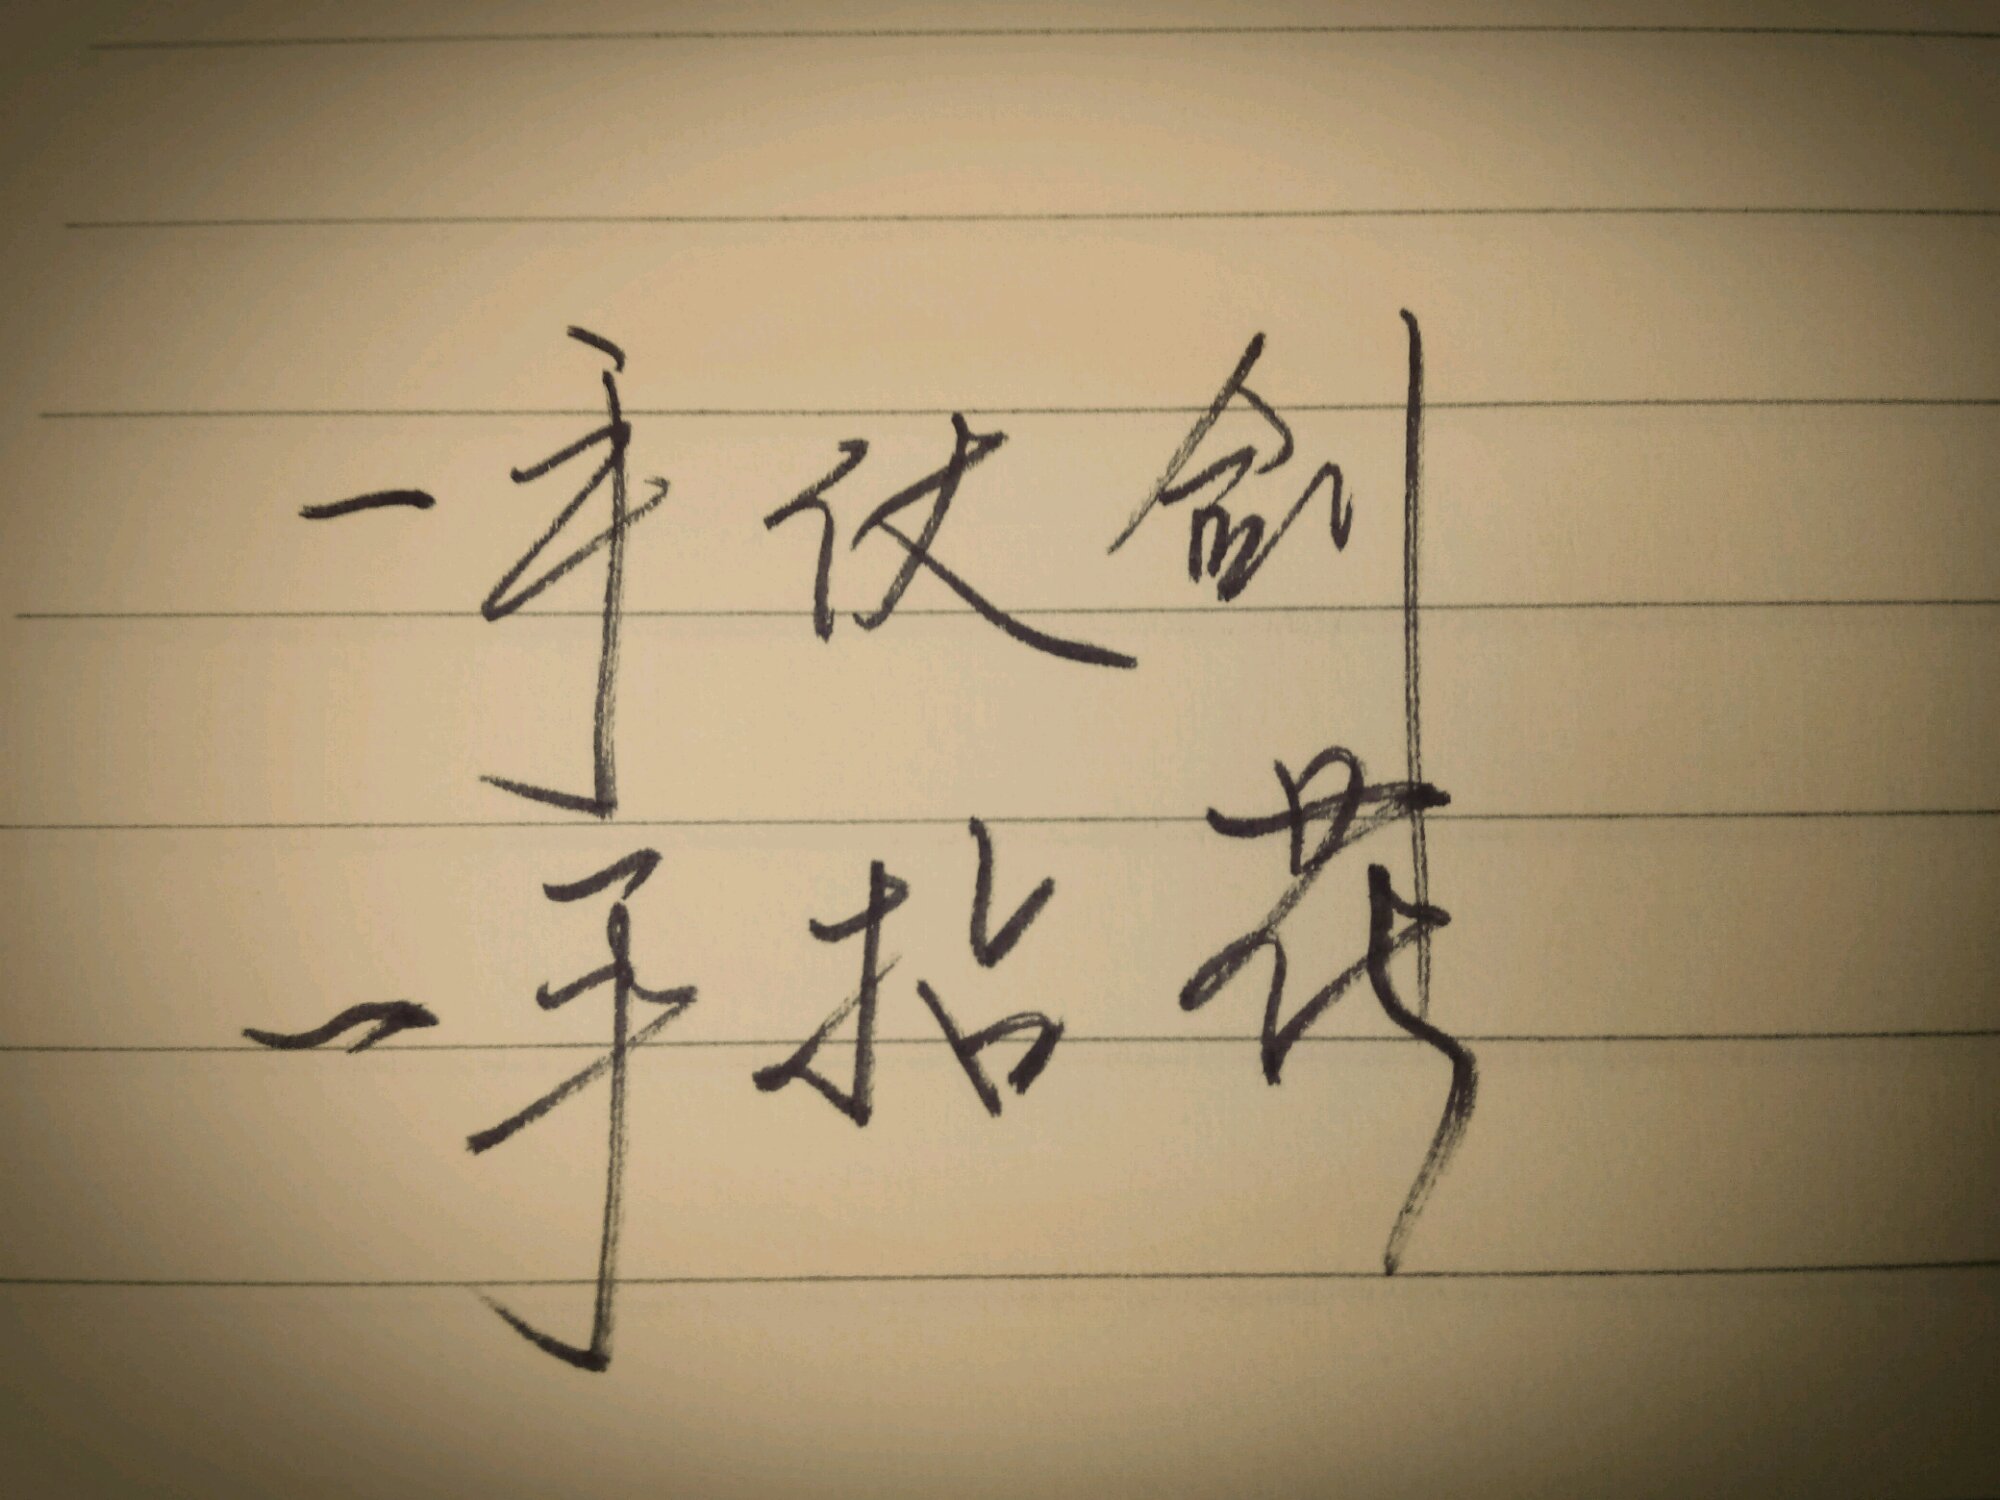 一手仗剑
一手拈花